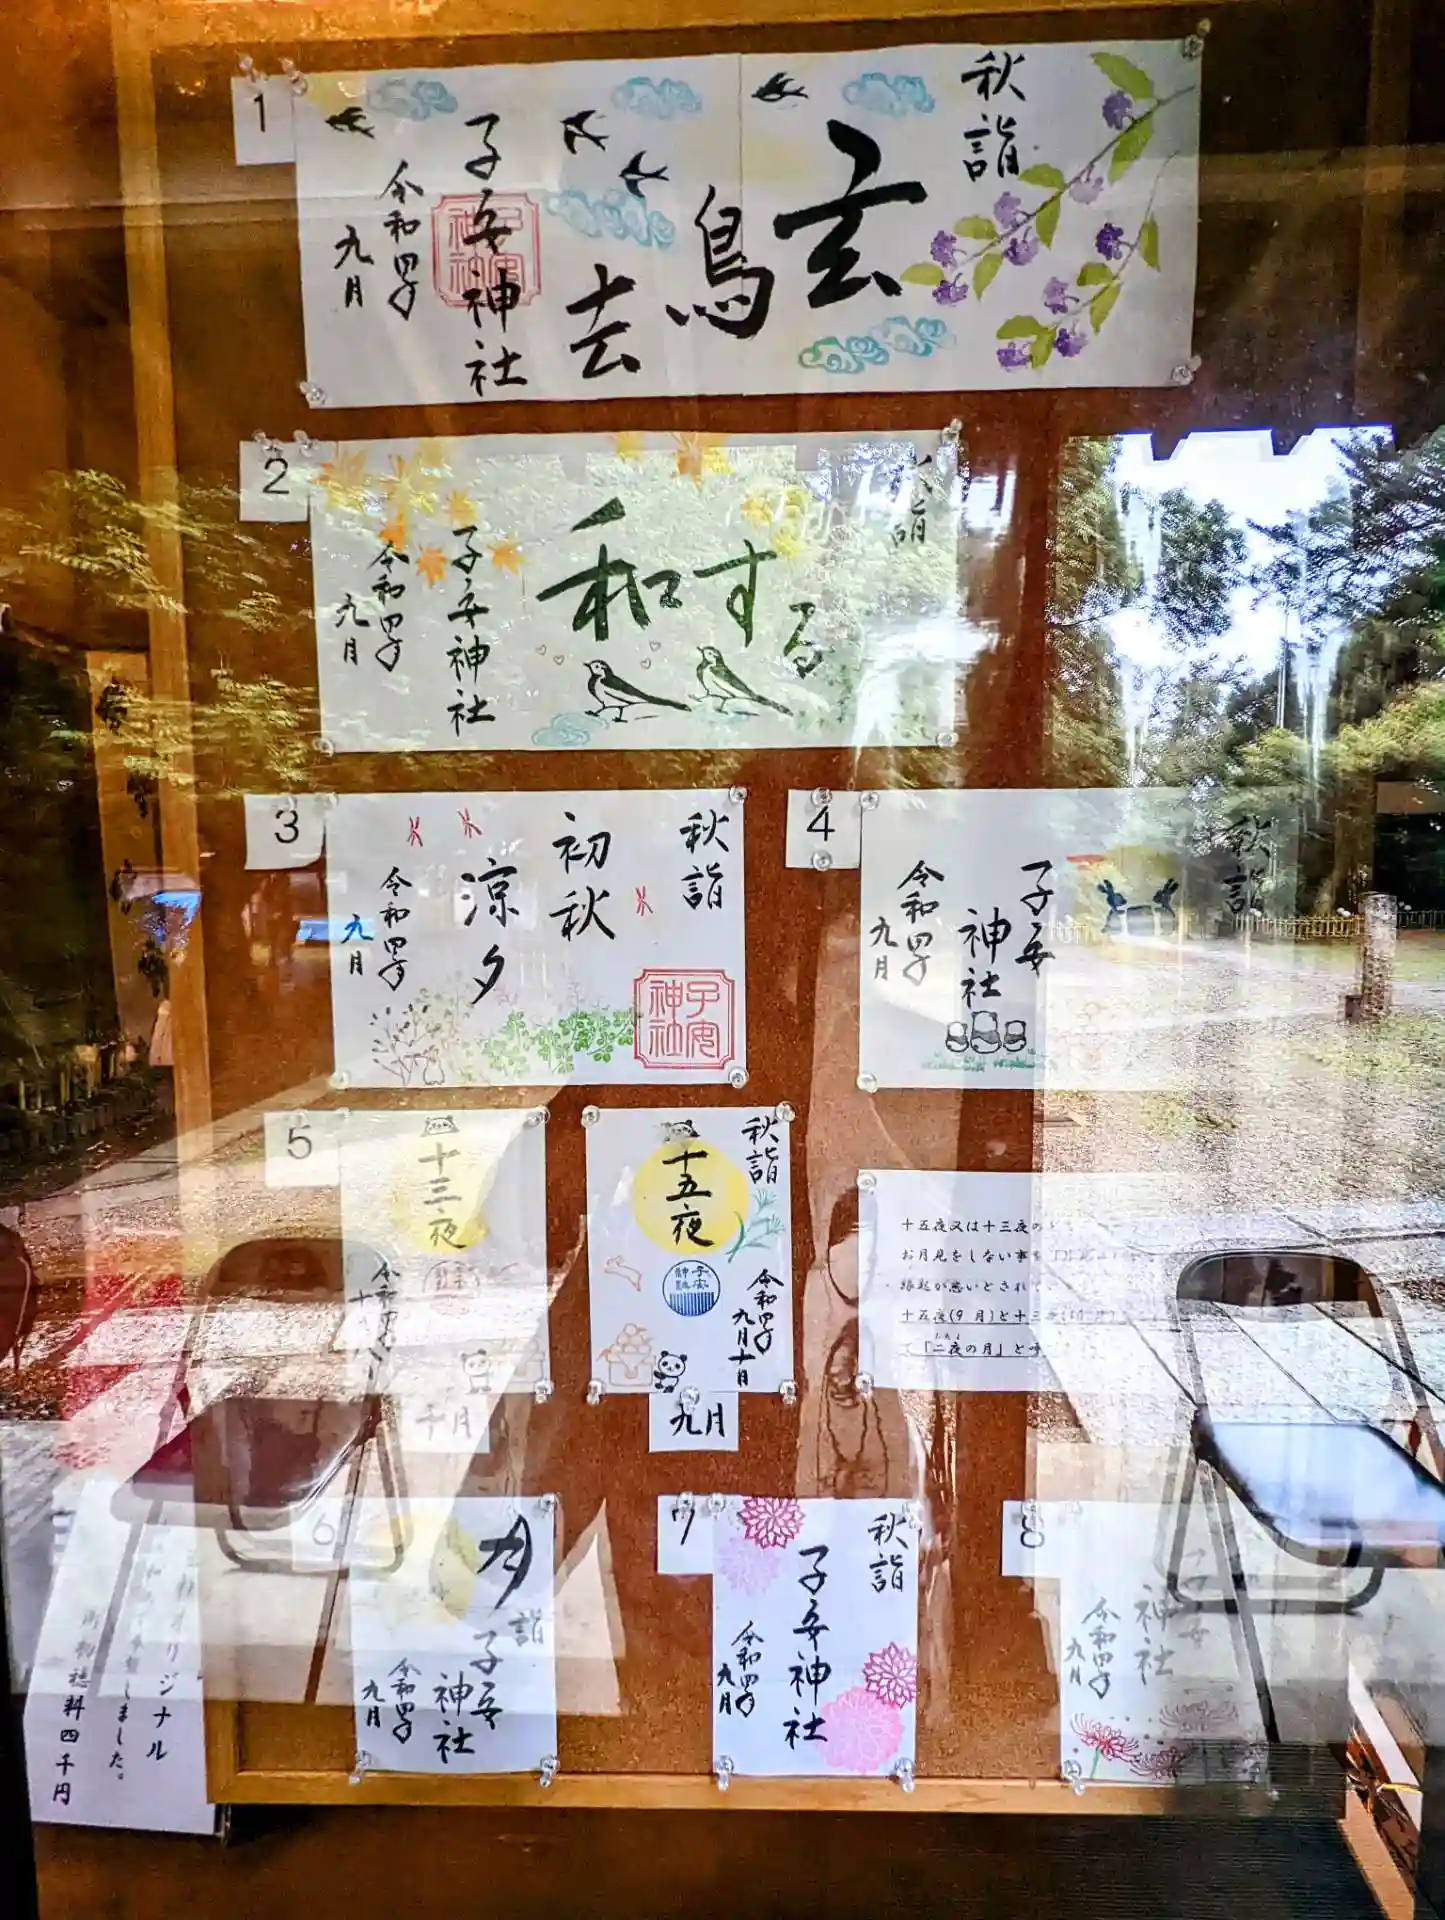 1
秋詣
玄
鳥
去
子安神社
子安神社
令和四年
九月
2
詣
和する
子安神社
令和四年
九月
3
秋詣
初秋
涼夕
子安神社
令和四年
九月
4
秋詣
子安
神社
令和四年
九月
5
十三夜
十月
秋詣
十五夜
子安神社
令和四年
九月十日
九月
十五夜又は十三夜の
お月見をしない事を
縁起が悪いとされ
十五夜(9月)と十三
て「二夜の月」と呼
6
月
詣
子安
神社
令和四年
九月
7
秋詣
子安神社
令和四年
九月
8
子安
神社
令和四年
九月
オリジナル
しました。
初穂料四千円